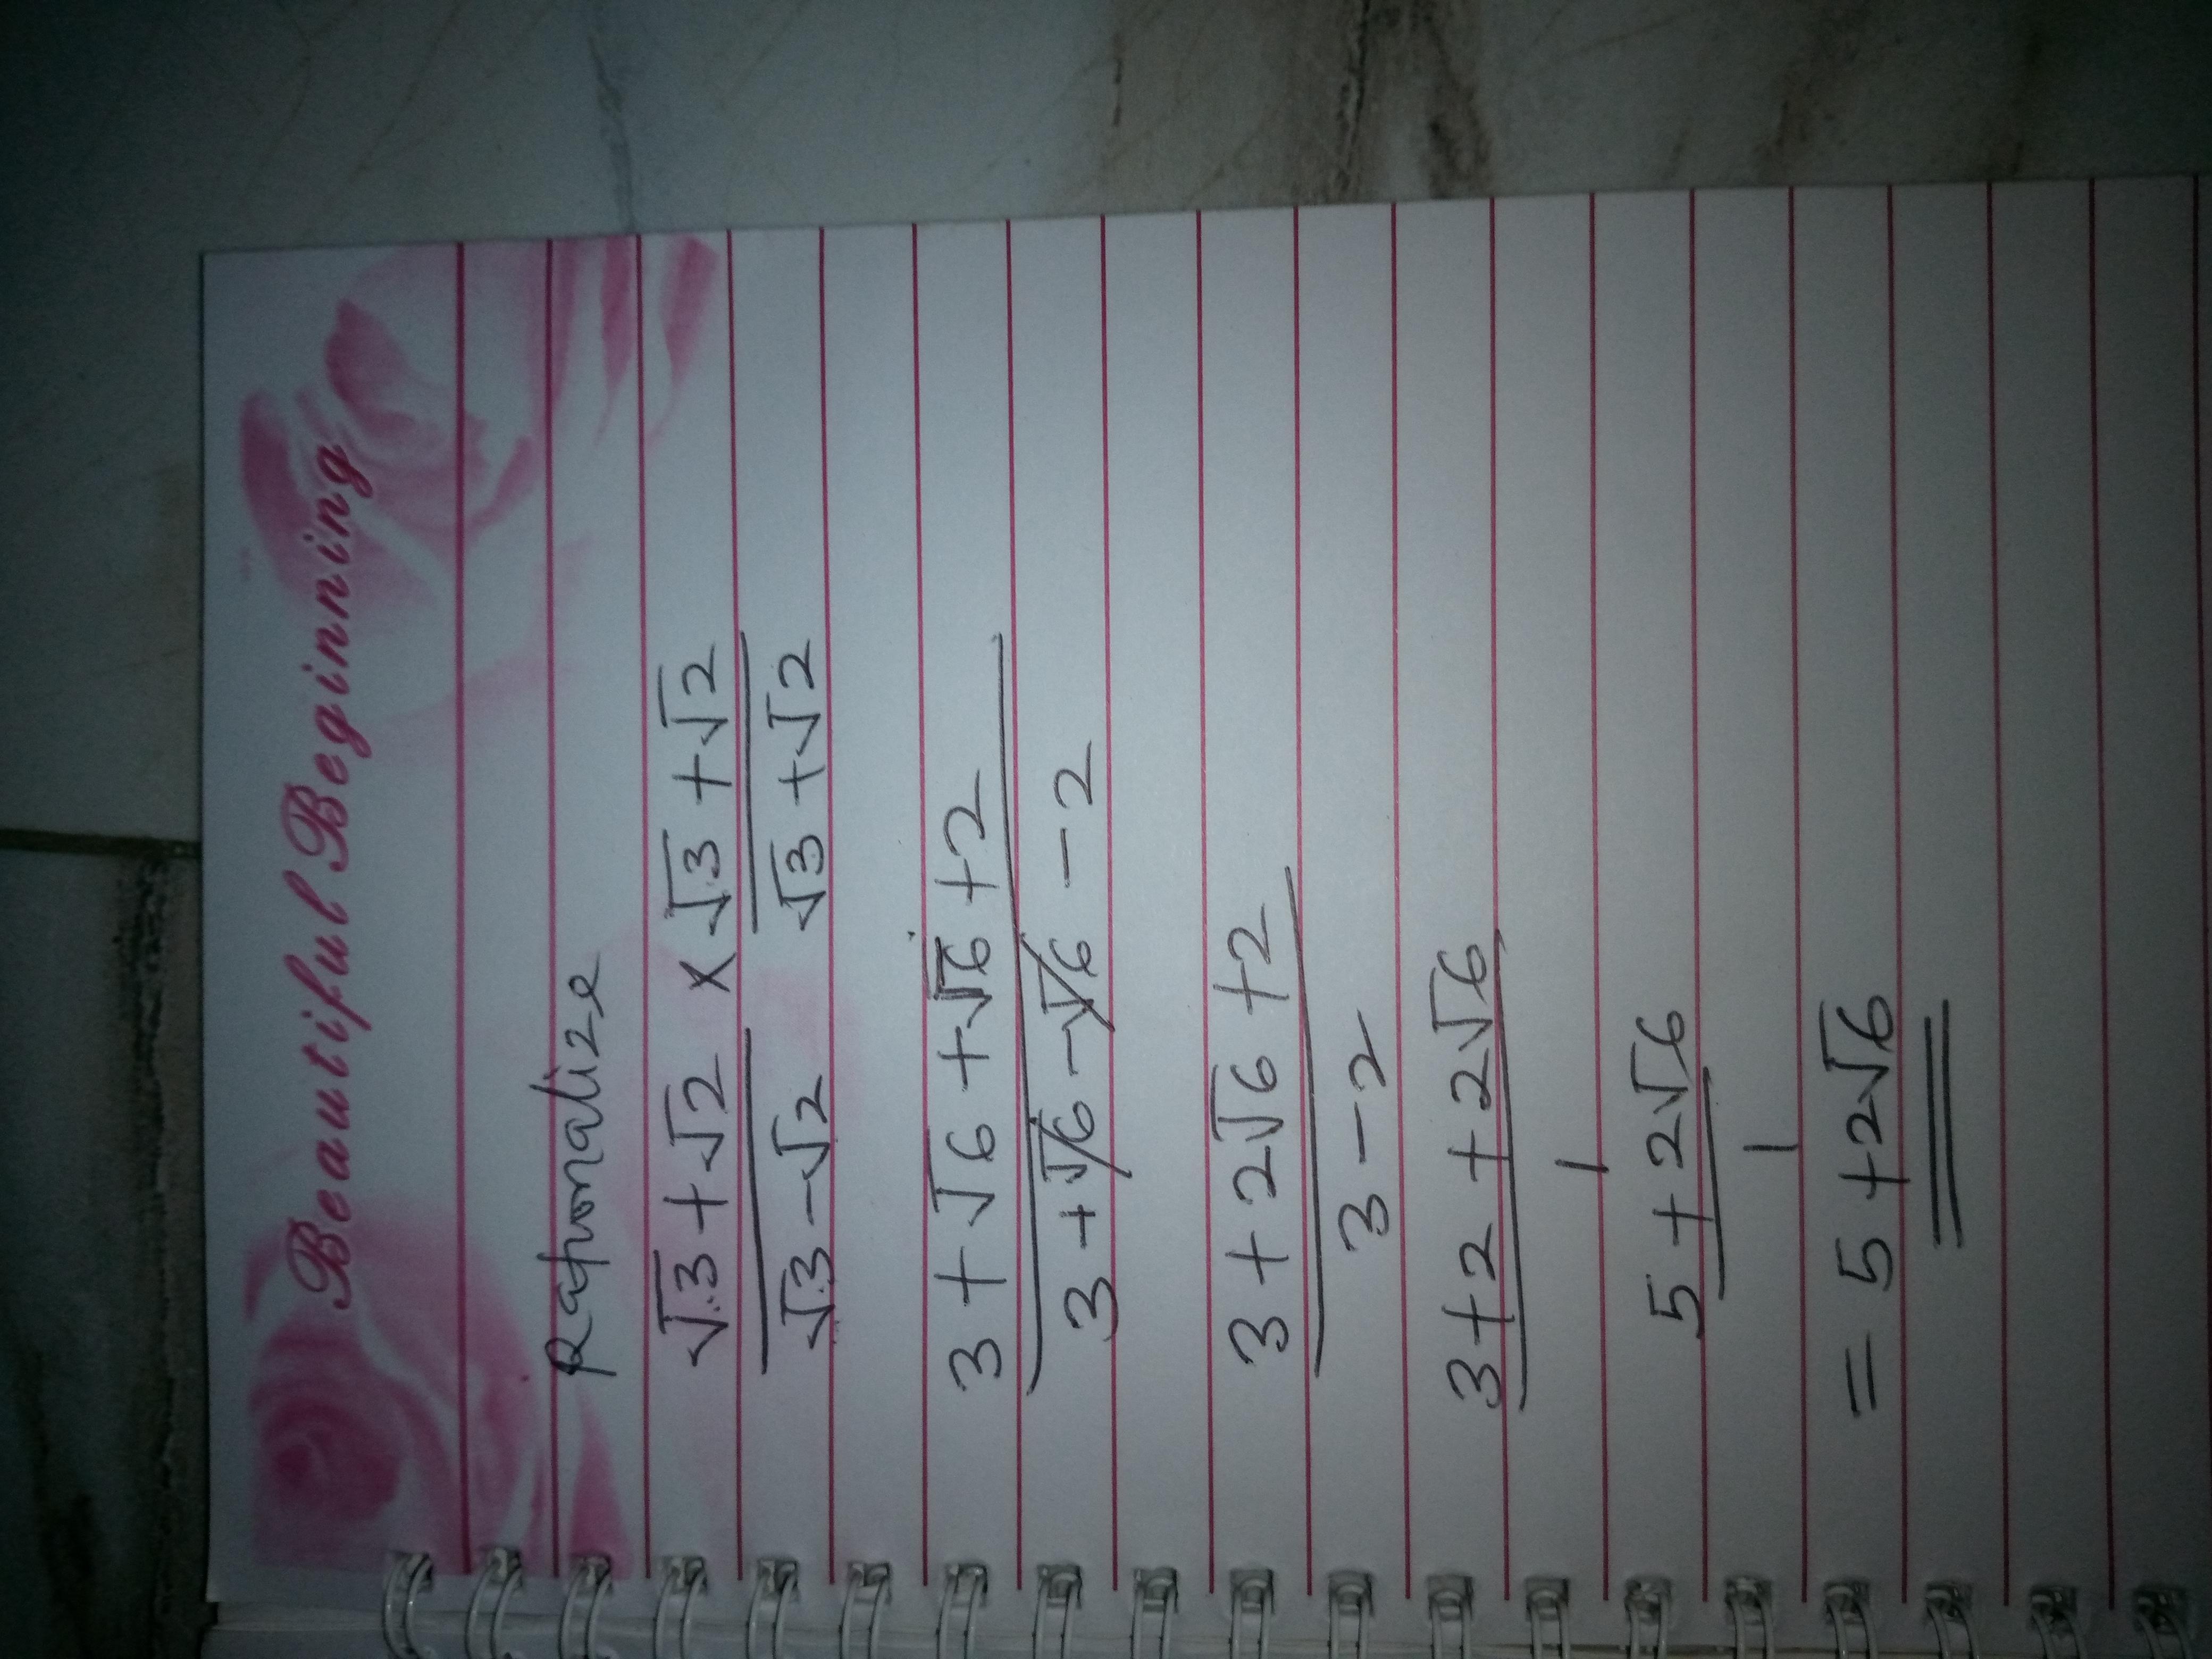 Beautiful Beginning
Rationalize
√3 + √2 × √3 + √2
√3 - √2 √3 + √2
3 + √6 + √6 + 2
3 + √6 - √6 - 2
3 + 2√6 + 2
3 - 2
3 + 2 + 2√6
1
5 + 2√6
1
= 5 + 2√6